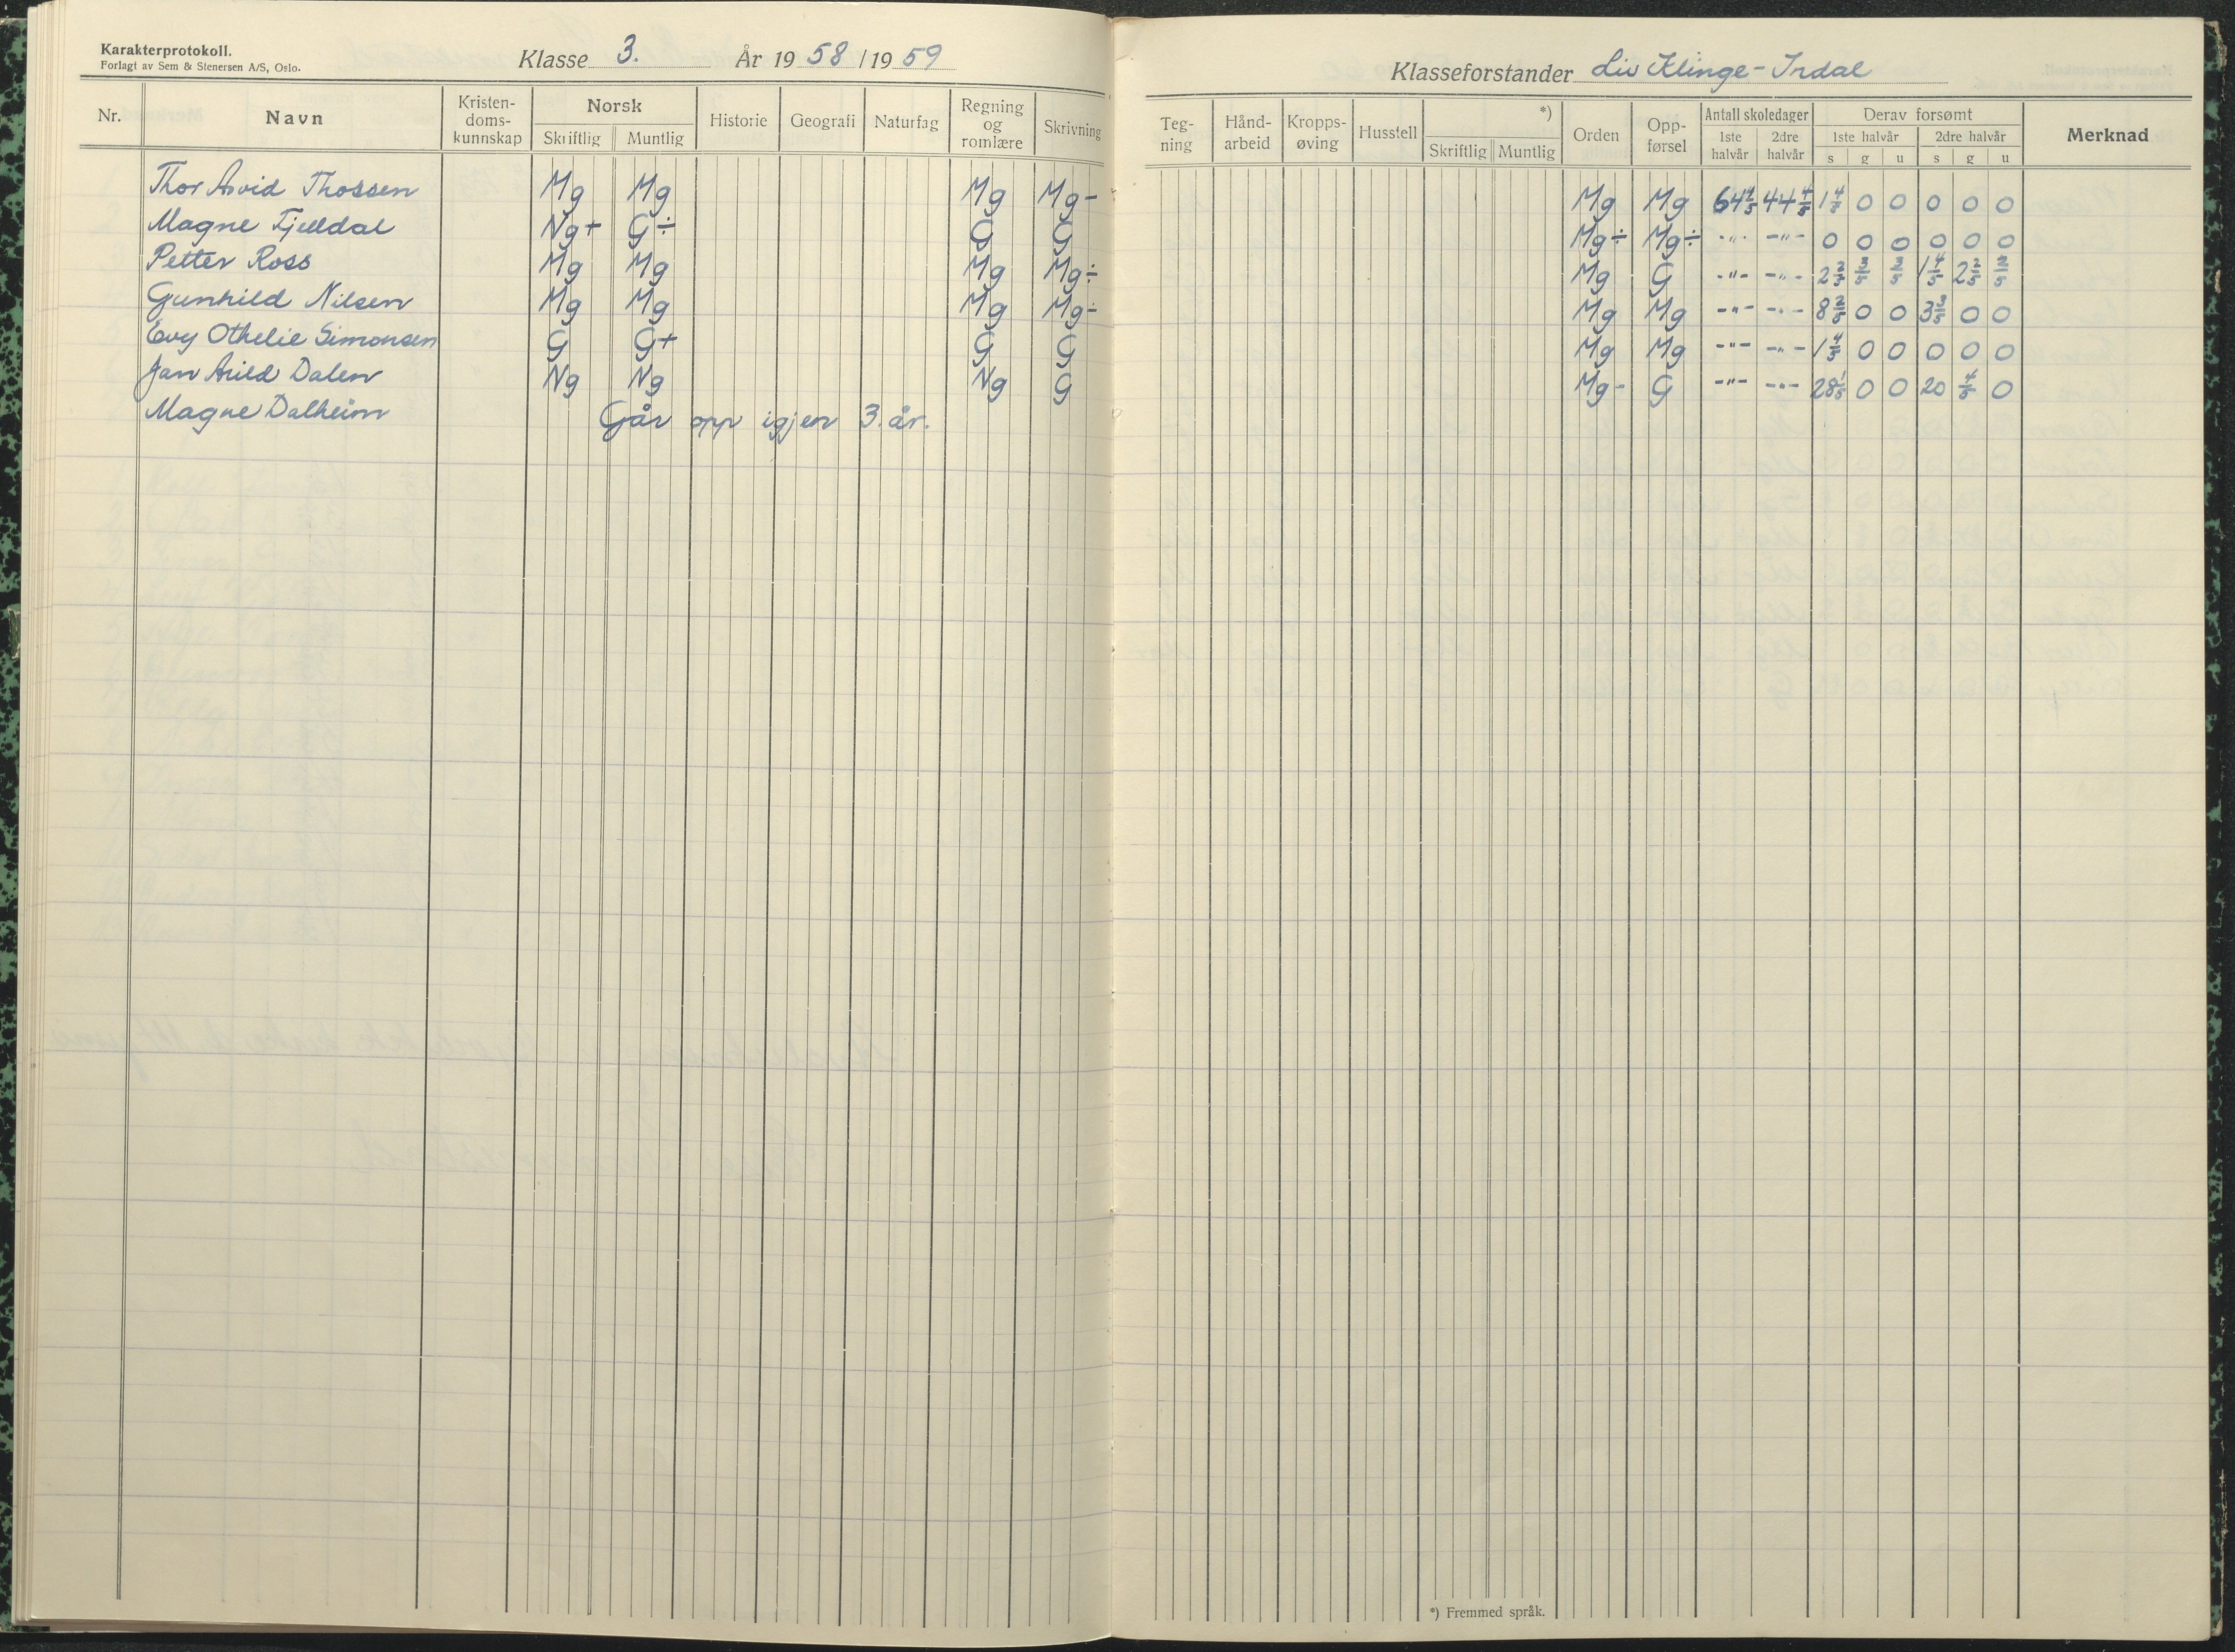 Karakterprotokoll.
Forlagt av Sem & Stenersen A/S, Oslo.
Klasse 3. År 1958/1959
Klasseforstander Liv Klinge-Irdal
Nr. Navn Kristen-doms-kunnskap Norsk Skriftlig Muntlig Historie Geografi Naturfag Regning og romlære Skrivning
Teg-ning Hånd-arbeid Kropps-øving Husstell *) Skriftlig Muntlig Orden Opp-førsel Antall skoledager 1ste halvår 2dre halvår Derav forsømt 1ste halvår s g u 2dre halvår s g u Merknad
Thor Arvid Thossen Mg Mg Mg Mg- Mg Mg 64 4/5 44 4/5 1 4/5 0 0 0 0 0
Magne Fjelldal Ng+ G÷ G G Mg÷ Mg÷ -"- -"- 0 0 0 0 0 0
Petter Ross Mg Mg Mg Mg÷ Mg G -"- -"- 2 2/5 3/5 3/5 1 4/5 2 2/5
Gunhild Nilsen Mg Mg Mg Mg÷ Mg Mg -"- -"- 8 2/5 0 0 3 3/5 0 0
Evy Othelie Simonsen G G+ G G Mg Mg -"- -"- 1 4/5 0 0 0 0 0
Jan Arild Dalen Ng Ng Ng G Mg- G -"- -"- 28 1/5 0 0 20 4/5 0
Magne Dalheim Går opp igjen 3. år.
*) Fremmed språk.